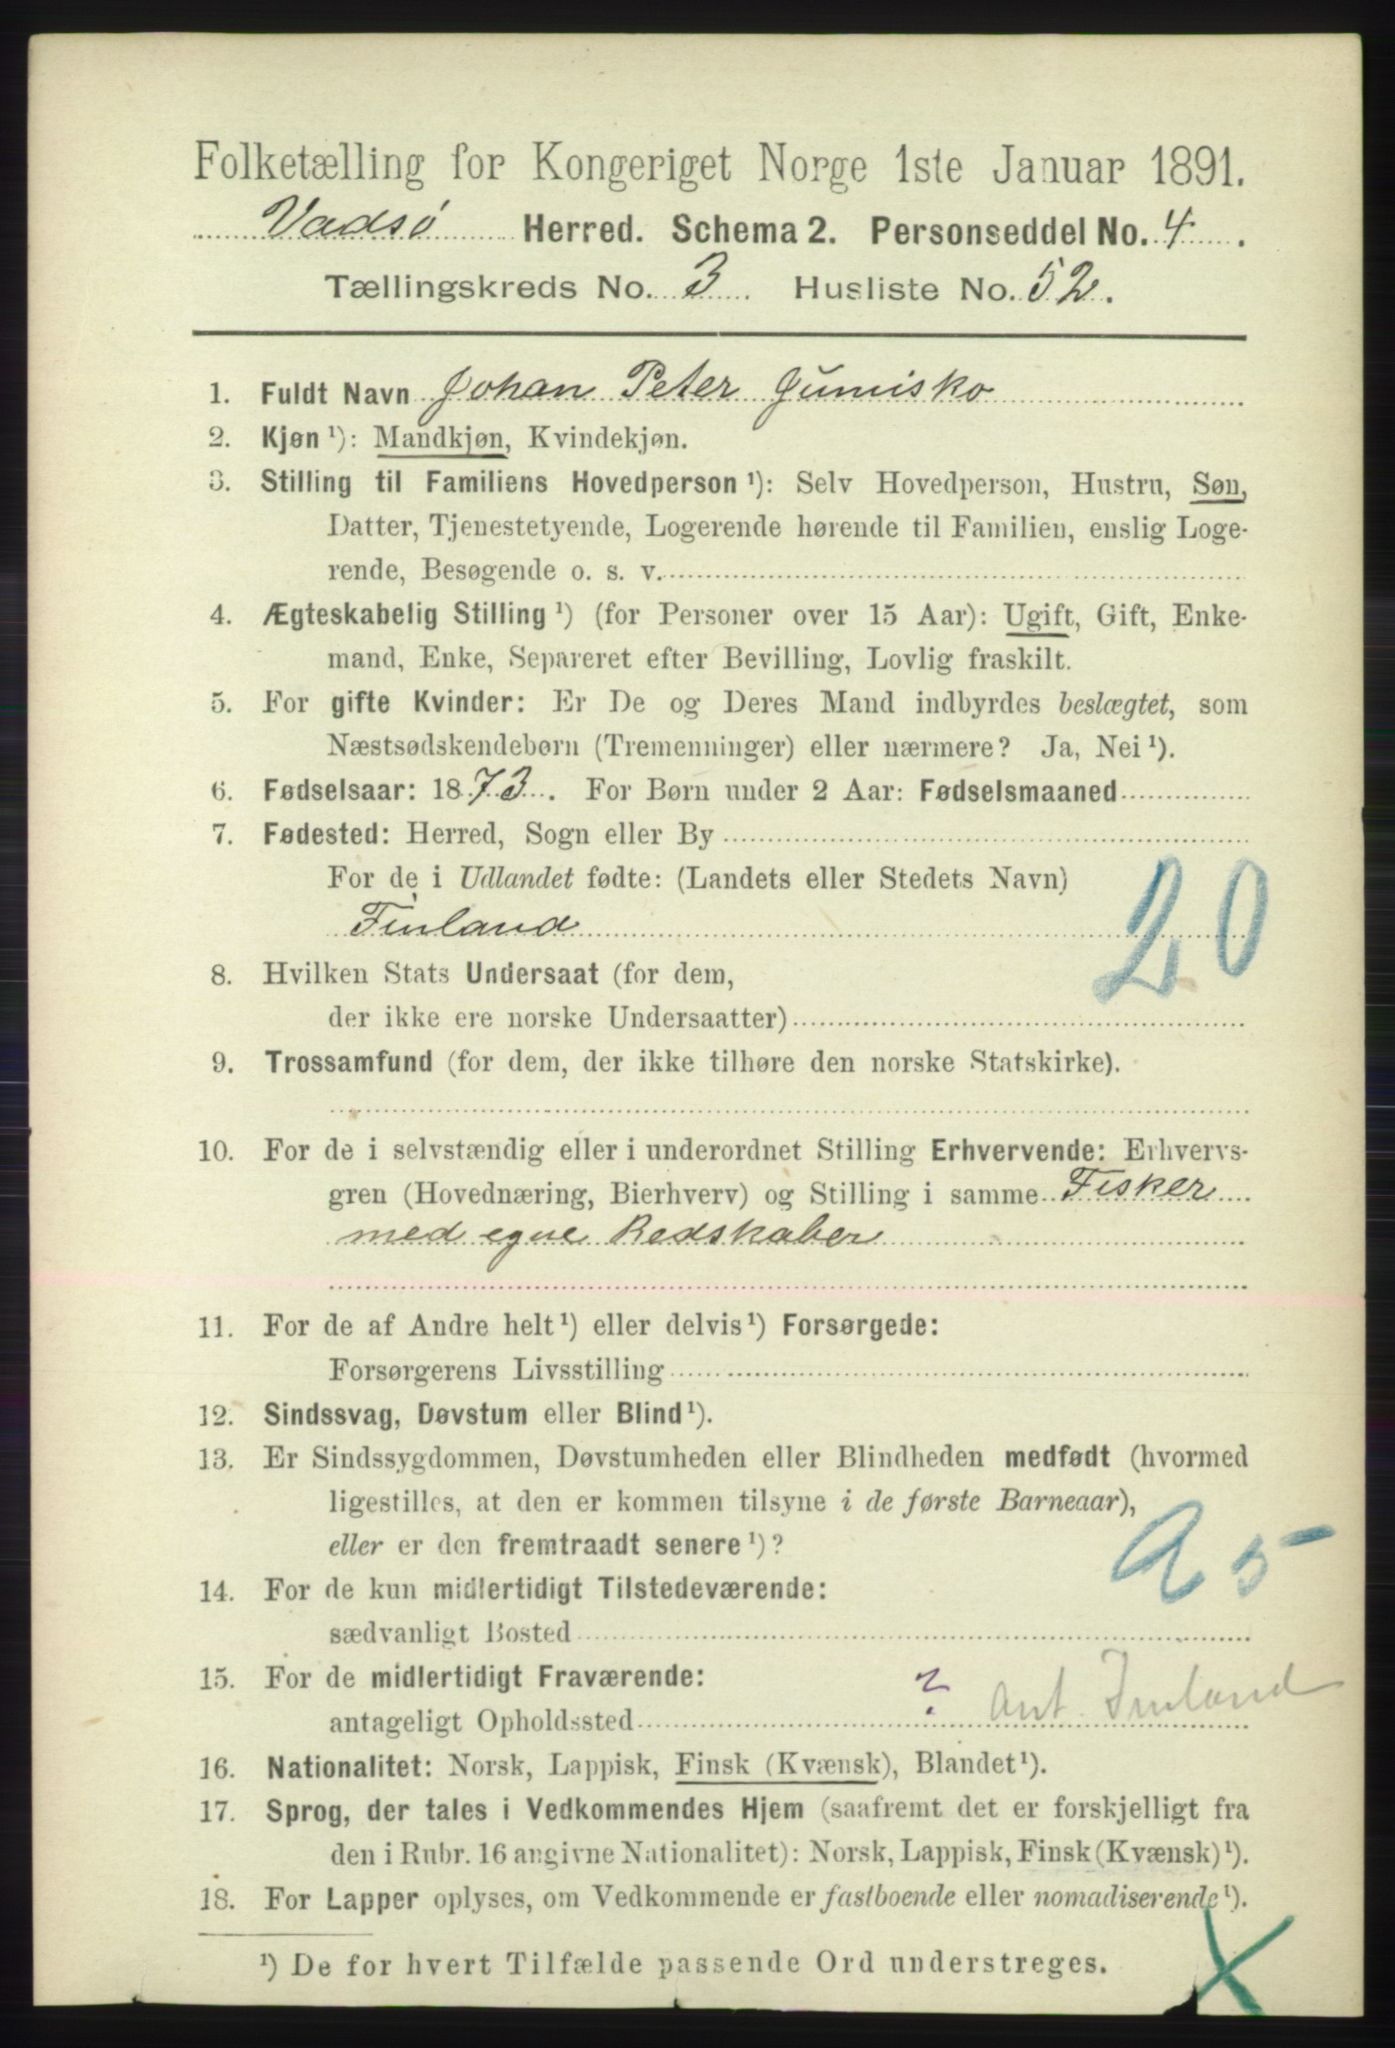 Folketælling for Kongeriget Norge 1ste Januar 1891.
Vadsø Herred. Schema 2. Personseddel No. 4.
Tællingskreds No. 3 Husliste No. 52.
1. Fuldt Navn Johan Peter Junisko
2. Kjøn ¹): Mandkjøn, Kvindekjøn.
3. Stilling til Familiens Hovedperson ¹): Selv Hovedperson, Hustru, Søn,
Datter, Tjenestetyende, Logerende hørende til Familien, enslig Loge-
rende, Besøgende o. s. v.
4. Ægteskabelig Stilling ¹) (for Personer over 15 Aar): Ugift, Gift, Enke-
mand, Enke, Separeret efter Bevilling, Lovlig fraskilt.
5. For gifte Kvinder: Er De og Deres Mand indbyrdes beslægtet, som
Næstsødskendebørn (Tremenninger) eller nærmere? Ja, Nei ¹).
6. Fødselsaar: 1873. For Børn under 2 Aar: Fødselsmaaned
7. Fødested: Herred, Sogn eller By
For de i Udlandet fødte: (Landets eller Stedets Navn)
Finland
20
8. Hvilken Stats Undersaat (for dem,
der ikke ere norske Undersaatter)
9. Trossamfund (for dem, der ikke tilhøre den norske Statskirke).
10. For de i selvstændig eller i underordnet Stilling Erhvervende: Erhvervs-
gren (Hovednæring, Bierhverv) og Stilling i samme Fisker
med egne Redskaber
11. For de af Andre helt ¹) eller delvis ¹) Forsørgede:
Forsørgerens Livsstilling
12. Sindssvag, Døvstum eller Blind ¹).
13. Er Sindssygdommen, Døvstumheden eller Blindheden medfødt (hvormed
ligestilles, at den er kommen tilsyne i de første Barneaar),
eller er den fremtraadt senere ¹)?
a 5
14. For de kun midlertidigt Tilstedeværende:
sædvanligt Bosted
15. For de midlertidigt Fraværende:
antageligt Opholdssted ? Ant. Finland
16. Nationalitet: Norsk, Lappisk, Finsk (Kvænsk), Blandet ¹).
17. Sprog, der tales i Vedkommendes Hjem (saafremt det er forskjelligt fra
den i Rubr. 16 angivne Nationalitet): Norsk, Lappisk, Finsk (Kvænsk) ¹).
18. For Lapper oplyses, om Vedkommende er fastboende eller nomadiserende ¹).
¹) De for hvert Tilfælde passende Ord understreges.